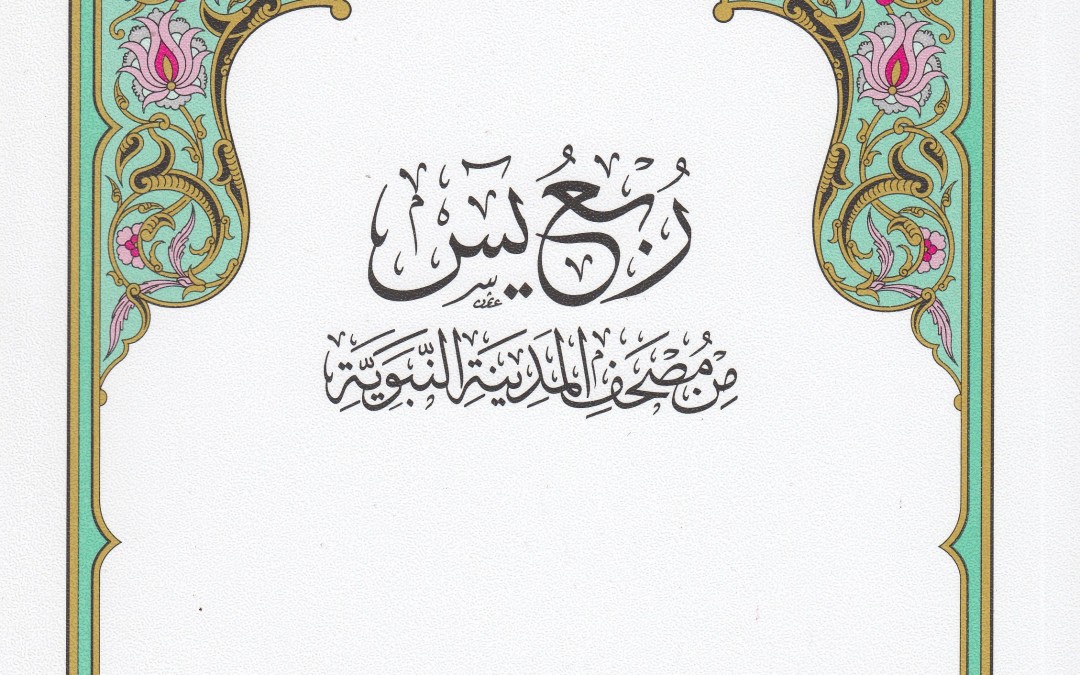 رُبْعُ يسٓ
مِنْ مُصْحَفِ الْمَدِينَةِ النَّبَوِيَّةِ